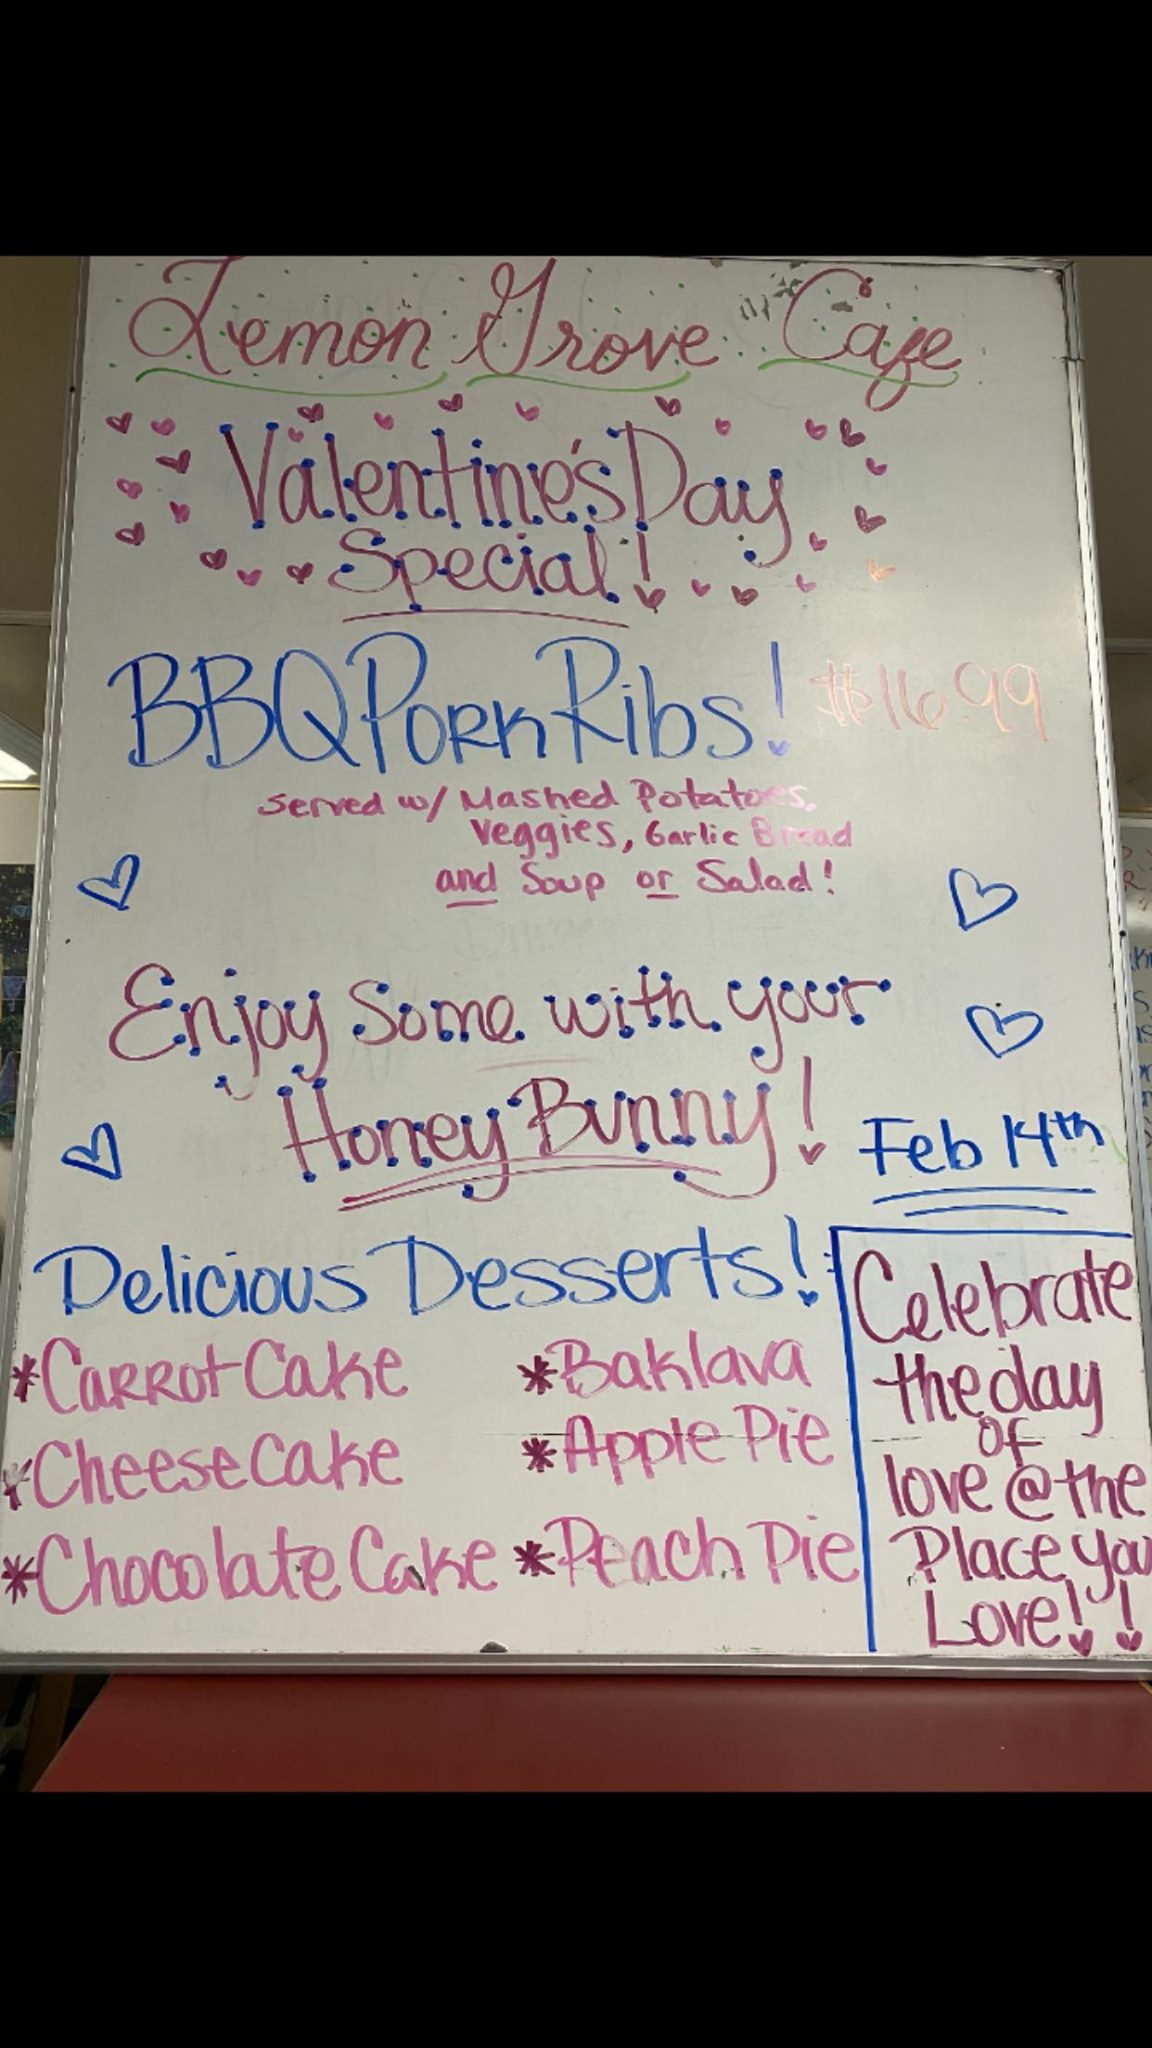 Lemon Grove Cafe
Valentine's Day
Special!
BBQ Pork Ribs! $16.99
Served w/ Mashed Potatoes,
Veggies, Garlic Bread
and Soup or Salad!
Enjoy Some with your
Honey Bunny!
Feb 14th
Delicious Desserts!
*Carrot Cake
*Baklava
*Cheese Cake
*Apple Pie
*Chocolate Cake
*Peach Pie
Celebrate
the day
of
love @ the
Place you
Love!!